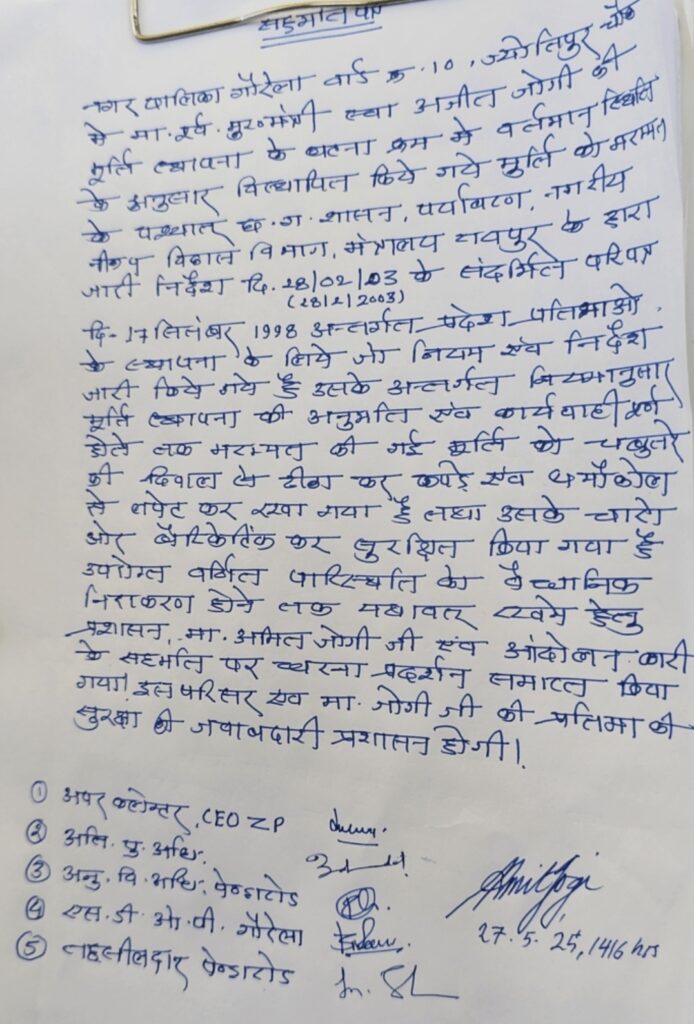 सहमति पत्र
नगर पालिका गौरेला वार्ड क्र. 10, ज्योतिपुर चौक
मे मा. पूर्व मुख्यमंत्री स्व. अजीत जोगी की
मूर्ति स्थापना के घटना क्रम मे वर्तमान स्थिति
के अनुसार विस्थापित किये गये मूर्ति को मरम्मत
के पश्चात छ. ग. शासन, पर्यावरण, नगरीय
विकास विभाग, मंत्रालय रायपुर के द्वारा
जारी निर्देश दि. 28/02/03 के संदर्भित परिपत्र
(28/2/2003)
दि- 17 सितंबर 1998 अन्तर्गत प्रदेश प्रतिमाओ
के स्थापना के लिये जो नियम एंव निर्देश
जारी किये गये है उसके अन्तर्गत नियमानुसार
मूर्ति स्थापना की अनुमति एंव कार्यवाही पूर्ण
होते तक मरम्मत की गई मूर्ति को चबूतरे
की दिवाल से टीका कर कपड़े एंव थर्मोकोल
से लपेट कर रखा गया है तथा उसके चारो
ओर बैरिकेटिंग कर सुरक्षित किया गया है
उपरोक्त वर्णित परिस्थिति को वैधानिक
निराकरण होने तक यथावत रखने हेतु
प्रशासन, मा. अमित जोगी जी एंव आंदोलन कारी
के सहमति पर धरना प्रदर्शन समाप्त किया
गया। इस परिसर एंव मा. जोगी जी की प्रतिमा की
सुरक्षा की जवाबदारी प्रशासन होगी।
① अपर कलेक्टर, CEO ZP
② अति. पु. अधि.
③ अनु. वि. अधि. पेण्ड्रारोड
④ एस. डी. ओ. पी. गौरेला
⑤ तहसीलदार पेण्ड्रारोड
Amit Jogi
27.5.25, 1416 hrs